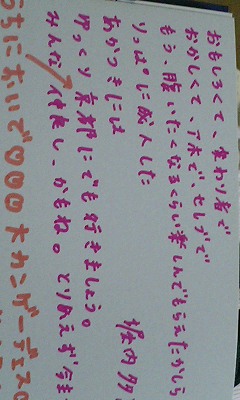 おもしろくて、変わり者で
おかしくて、アホで、セレブで
もう、腹いたくなるくらい楽しんでもらえたかしら
りっぱに成人した
あかつきには
ゆっくり京都にでも行きましょう。
みんな仲良し、かもね。とりあえず今
堀内
うちにおいで